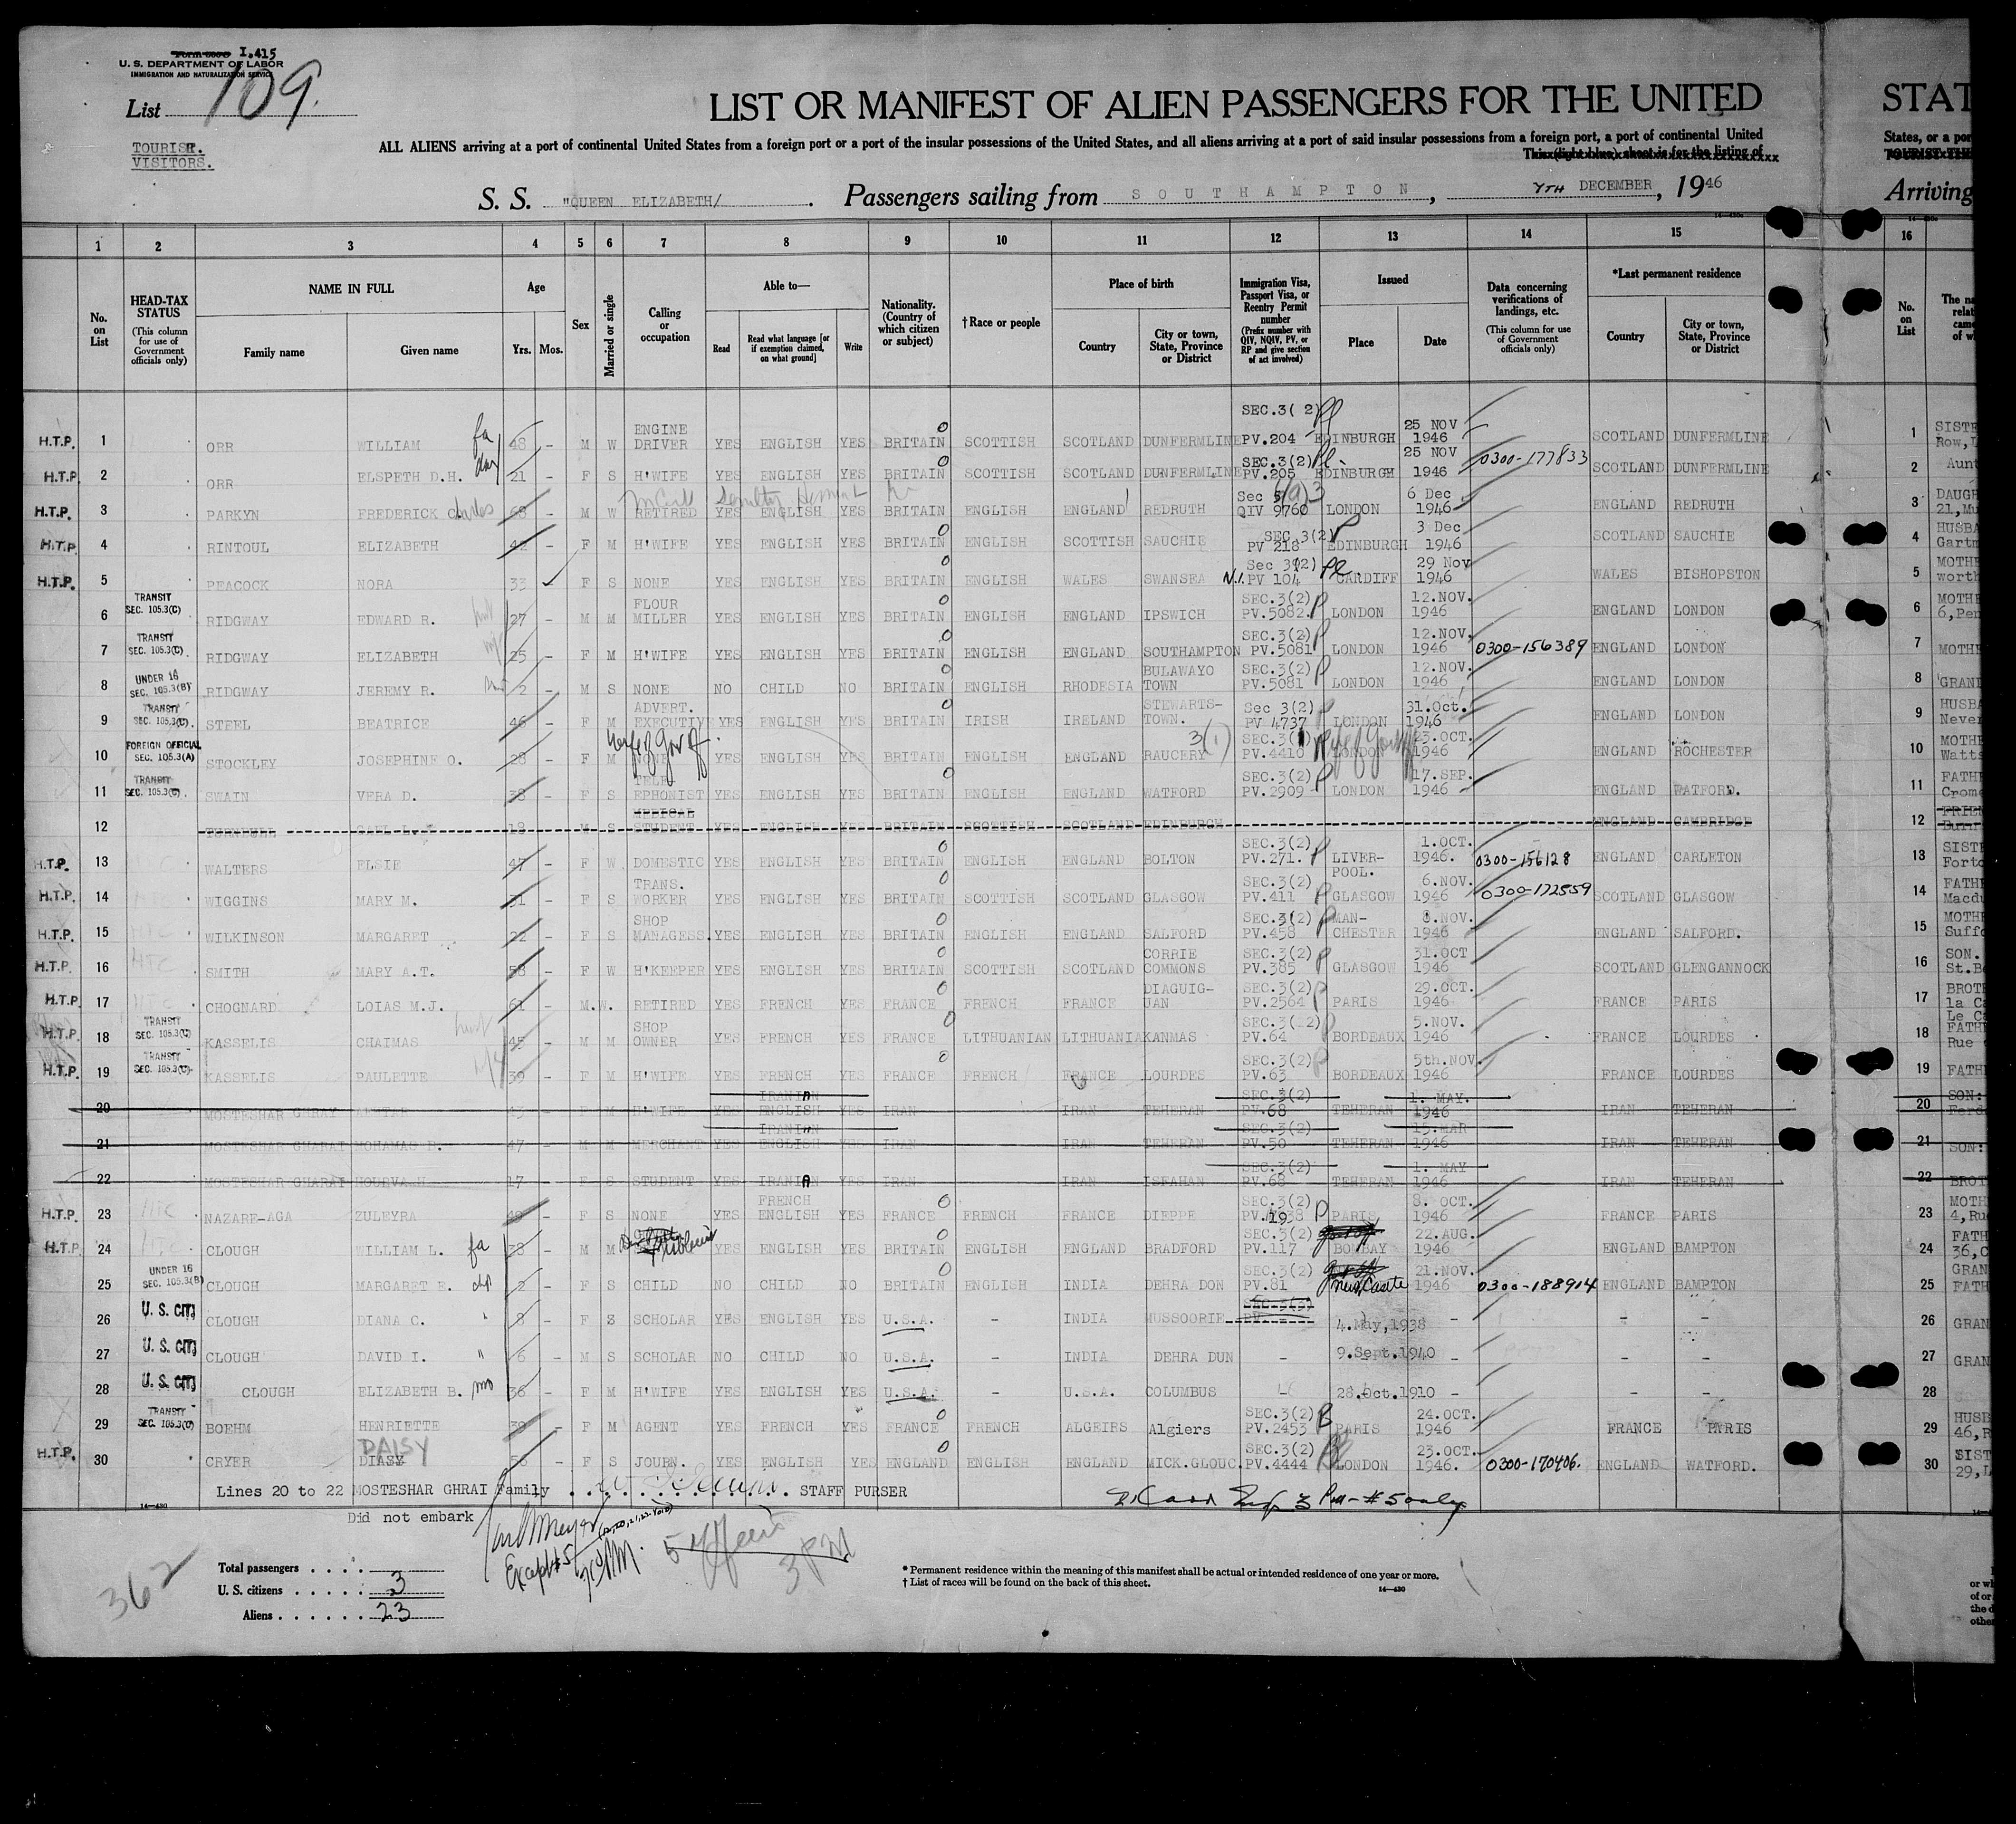 Form 500-B I.415
U. S. DEPARTMENT OF LABOR
IMMIGRATION AND NATURALIZATION SERVICE
List 109.
TOURIST.
VISITORS.
LIST OR MANIFEST OF ALIEN PASSENGERS FOR THE UNITED
STAT
ALL ALIENS arriving at a port of continental United States from a foreign port or a port of the insular possessions of the United States, and all aliens arriving at a port of said insular possessions from a foreign port, a port of continental United
States, or a por
This (light blue) sheet is for the listing of
S. S. "QUEEN ELIZABETH/ . Passengers sailing from SOUTHAMPTON , 7TH DECEMBER , 1946
Arriving
1 2 3 4 5 6 7 8 9 10 11 12 13 14 15 16
No. on List
HEAD-TAX STATUS (This column for use of Government officials only)
NAME IN FULL
Family name Given name
Age
Yrs. Mos.
Sex
Married or single
Calling or occupation
Able to—
Read Read what language [or if exemption claimed, on what ground] Write
Nationality. (Country of which citizen or subject)
†Race or people
Place of birth
Country City or town, State, Province or District
Immigration Visa, Passport Visa, or Reentry Permit number (Prefix number with QIV, NQIV, PV, or RP and give section of act involved)
Issued
Place Date
Data concerning verifications of landings, etc. (This column for use of Government officials only)
*Last permanent residence
Country City or town, State, Province or District
No. on List
H.T.P. 1 ORR WILLIAM fa 48 – M W ENGINE DRIVER YES ENGLISH YES BRITAIN SCOTTISH SCOTLAND DUNFERMLINE SEC.3( 2) PV.204 EDINBURGH 25 NOV 1946 SCOTLAND DUNFERMLINE 1 SISTE Row,L
H.T.P. 2 ORR ELSPETH D.H. dau 21 – F S H'WIFE YES ENGLISH YES BRITAIN SCOTTISH SCOTLAND DUNFERMLINE SEC.3(2) PV.205 EDINBURGH 25 NOV 1946 0300-177833 SCOTLAND DUNFERMLINE 2 Aunt
H.T.P. 3 PARKYN FREDERICK Charles 68 – M W RETIRED YES ENGLISH YES BRITAIN ENGLISH ENGLAND REDRUTH Sec 3 QIV 9760 LONDON 6 Dec 1946 ENGLAND REDRUTH 3 DAUGH 21,Mu
H.T.P. 4 RINTOUL ELIZABETH 42 – F M H'WIFE YES ENGLISH YES BRITAIN ENGLISH SCOTTISH SAUCHIE SEC 3(2) PV 218 EDINBURGH 3 Dec 1946 SCOTLAND SAUCHIE 4 HUSBA Gartm
H.T.P. 5 PEACOCK NORA 33 F S NONE YES ENGLISH YES BRITAIN ENGLISH WALES SWANSEA Sec 3(2) N.I. PV 104 CARDIFF 29 Nov 1946 WALES BISHOPSTON 5 MOTHE worth
6 TRANSIT SEC. 105.3(C) RIDGWAY EDWARD R. 27 – M M FLOUR MILLER YES ENGLISH YES BRITAIN ENGLISH ENGLAND IPSWICH SEC.3(2) PV.5082 LONDON 12.NOV. 1946 ENGLAND LONDON 6 MOTHE 6,Pen
7 TRANSIT SEC. 105.3(C) RIDGWAY ELIZABETH 25 – F M H'WIFE YES ENGLISH YES BRITAIN ENGLISH ENGLAND SOUTHAMPTON SEC.3(2) PV.5081 LONDON 12.NOV. 1946 0300-156389 ENGLAND LONDON 7 MOTHE
8 UNDER 16 SEC. 105.3(B) RIDGWAY JEREMY R. 2 – M S NONE NO CHILD NO BRITAIN ENGLISH RHODESIA BULAWAYO TOWN SEC.3(2) PV.5081 LONDON 12.NOV. 1946 ENGLAND LONDON 8 GRAND
9 TRANSIT SEC. 105.3(C) STEEL BEATRICE 46 – F M ADVERT. EXECUTIVE YES ENGLISH YES BRITAIN IRISH IRELAND STEWARTS- TOWN. Sec 3(2) PV 4737 LONDON 31.Oct. 1946 ENGLAND LONDON 9 HUSBA Never
10 FOREIGN OFFICIAL SEC. 105.3(A) STOCKLEY JOSEPHINE O. 28 – F M NONE YES ENGLISH YES BRITAIN ENGLISH ENGLAND RAUCERY 3(1) PV.4410 LONDON 23.OCT. 1946 ENGLAND ROCHESTER 10 MOTHE Watts
11 TRANSIT SEC. 105.3(C) SWAIN VERA D. 38 – F S TELE- EPHONIST YES ENGLISH YES BRITAIN ENGLISH ENGLAND WATFORD SEC.3(2) PV.2909 LONDON 17.SEP. 1946 ENGLAND WATFORD. 11 FATHE Crome
12 TURNBULL 18 M S MEDICAL STUDENT YES ENGLISH YES BRITAIN SCOTTISH SCOTLAND EDINBURGH ENGLAND CAMBRIDGE 12 FRIEN
H.T.P. 13 WALTERS ELSIE 47 – F W DOMESTIC YES ENGLISH YES BRITAIN ENGLISH ENGLAND BOLTON SEC.3(2) PV.271. LIVER- POOL. 1.OCT. 1946. 0300-156128 ENGLAND CARLETON 13 SISTE Forto
H.T.P. 14 WIGGINS MARY M. 31 – F S TRANS. WORKER YES ENGLISH YES BRITAIN SCOTTISH SCOTLAND GLASGOW SEC.3(2) PV.411 GLASGOW 6.NOV. 1946 0300-172559 SCOTLAND GLASGOW 14 FATHE Macdu
H.T.P. 15 WILKINSON MARGARET 22 – F S SHOP MANAGESS. YES ENGLISH YES BRITAIN ENGLISH ENGLAND SALFORD SEC.3(2) PV.458 MAN- CHESTER 8.NOV. 1946 ENGLAND SALFORD. 15 MOTHE Suffo
H.T.P. 16 SMITH MARY A.T. 58 – F W H'KEEPER YES ENGLISH YES BRITAIN SCOTTISH SCOTLAND CORRIE COMMONS SEC.3(2) PV.385 GLASGOW 31.OCT 1946 SCOTLAND GLENGANNOCK 16 SON. St.Be
H.T.P. 17 CHOGNARD LOIAS M.J. 61 – M.W. RETIRED YES FRENCH YES FRANCE FRENCH FRANCE DIAGUIG- UAN SEC.3(2) PV.2564 PARIS 29.OCT. 1946 FRANCE PARIS 17 BROTE la Ca Le Ca
H.T.P. 18 TRANSIT SEC. 105.3(C) KASSELIS CHAIMAS 45 – M M SHOP OWNER YES FRENCH YES FRANCE LITHUANIAN LITHUANIA KANMAS SEC.3(2) PV.64 BORDEAUX 5.NOV. 1946 FRANCE LOURDES 18 FATHE Rue
H.T.P. 19 TRANSIT SEC. 105.3(C) KASSELIS PAULETTE 39 – F M H'WIFE YES FRENCH YES FRANCE FRENCH FRANCE LOURDES SEC.3(2) PV.63 BORDEAUX 5th.NOV. 1946 FRANCE LOURDES 19 FATHE
20 MOSTESHAR GHRAY F M H'WIFE YES IRANIAN ENGLISH YES IRAN IRAN TEHERAN SEC.3(2) PV.68 TEHERAN 1. MAY. 1946 IRAN TEHERAN 20 SON:
21 MOSTESHAR GHARAI MOHAMAD 47 M M MERCHANT YES IRANIAN ENGLISH YES IRAN IRAN TEHERAN SEC.3(2) PV.50 TEHERAN 15.MAR 1946 IRAN TEHERAN 21 SON:
22 MOSTESHAR GHARAI 17 F S STUDENT YES IRANIAN YES IRAN IRAN ISFAHAN SEC.3(2) PV.68 TEHERAN 1. MAY 1946 IRAN TEHERAN 22 BROT
H.T.P. 23 NAZARE-AGA ZULEYRA – F S NONE YES FRENCH ENGLISH YES FRANCE FRENCH FRANCE DIEPPE SEC.3(2) PV.1938 PARIS 8. OCT. 1946 FRANCE PARIS 23 MOTH 4,Ru
H.T.P. 24 CLOUGH WILLIAM L. fa – M M YES ENGLISH YES BRITAIN ENGLISH ENGLAND BRADFORD SEC.3(2) PV.117 BOMBAY 22.AUG. 1946 ENGLAND BAMPTON 24 FATH 36,C
25 UNDER 16 SEC. 105.3(B) CLOUGH MARGARET E. 2 – F S CHILD NO CHILD NO BRITAIN ENGLISH INDIA DEHRA DON SEC.3(2) PV.81 New Castle 21.NOV. 1946 0300-188914 ENGLAND BAMPTON 25 GRAN FATH
26 U. S. CIT] CLOUGH DIANA C. 8 – F S SCHOLAR YES ENGLISH YES U.S.A. – INDIA MUSSOORIE 4.May,1938 – – – 26 GRAN
27 U. S. CIT] CLOUGH DAVID I. " 6 – M S SCHOLAR NO CHILD NO U.S.A. – INDIA DEHRA DUN – 9.Sept.1940 – – – 27 GRAN
28 U. S. CIT] CLOUGH ELIZABETH B. mo 36 – F M H'WIFE YES ENGLISH YES U.S.A. – U.S.A. COLUMBUS – 28.Oct.1910 – – – 28
29 TRANSIT SEC. 105.3(C) BOEHM HENRIETTE 39 – F M AGENT YES FRENCH YES FRANCE FRENCH ALGEIRS Algiers SEC.3(2) PV.2453 PARIS 24.OCT. 1946 FRANCE PARIS 29 HUSB 46,R
H.T.P. 30 CRYER DAISY DIASY – F S JOURN. YES ENGLISH YES ENGLAND ENGLISH ENGLAND MICK.GLOUC. SEC.3(2) PV.4444 LONDON 23.OCT. 1946. 0300-170406. ENGLAND WATFORD. 30 SIST 29,L
Lines 20 to 22 MOSTESHAR GHRAI Family STAFF PURSER
Did not embark
14—430
Except #5
3 PM
362
Total passengers
U. S. citizens 3
Aliens 23
* Permanent residence within the meaning of this manifest shall be actual or intended residence of one year or more.
† List of races will be found on the back of this sheet.
14—430
or wh
of or
the d
othe